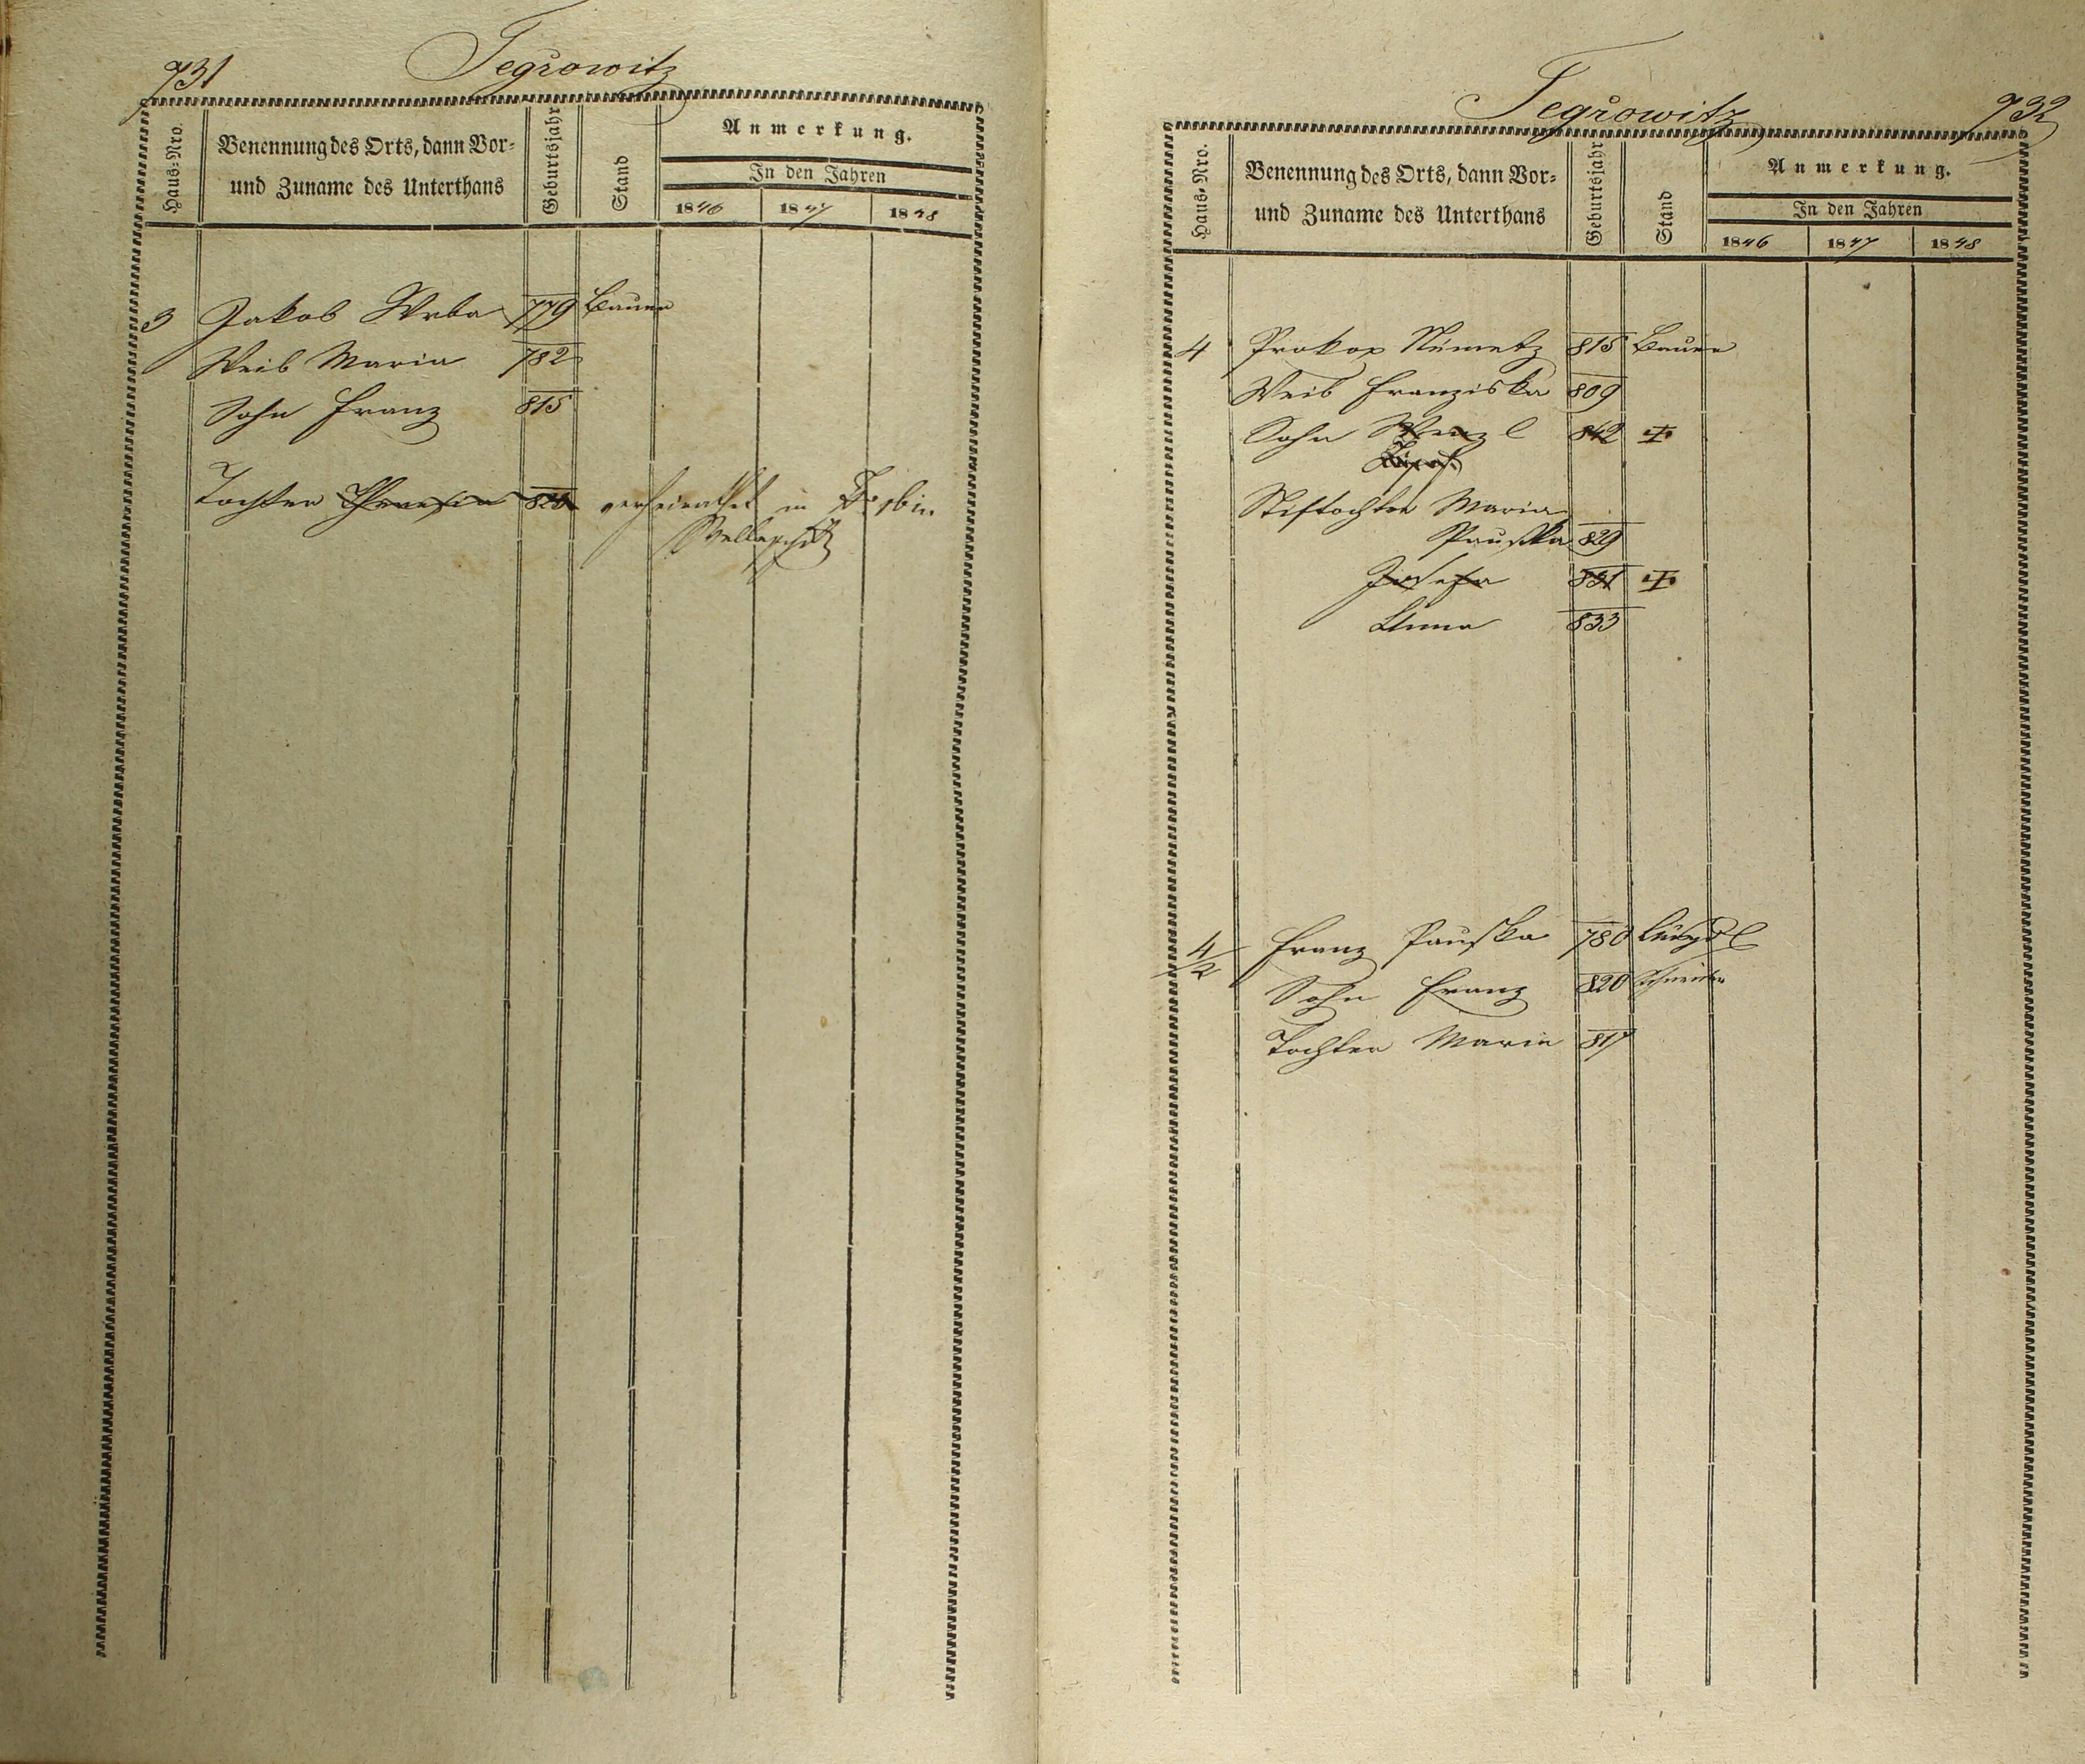 731
Tegrowitz
Haus-Nro.
Benennung des Orts, dann Vor-
und Zuname des Unterthans
Geburtsjahr
Stand
Anmerkung.
In den Jahren
1846 1847 1848
3 Jakob Wrba 779 Bauer
Weib Maria 782
Sohn Franz 815
Tochter Theresia verheirathet in
732
Tegrowitz
Haus-Nro.
Benennung des Orts, dann Vor-
und Zuname des Unterthans
Geburtsjahr
Stand
Anmerkung.
In den Jahren
1846 1847 1848
4 Prokop Němetz 815 Bauer
Weib Franziska 809
Sohn Wenzl 842 ✝
Stiftochter Maria
Pauska 829
Josefa 831 ✝
Anna 833
4/2 Franz Pauska 780
Sohn Franz 820 Schneider
Tochter Maria 817